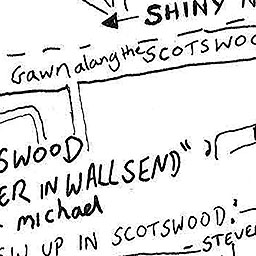 SHINY
Gawn alang the SCOTSWOO
SWOOD
ER IN WALLSEND"
michael
UP IN SCOTSWOOD:
STEVE